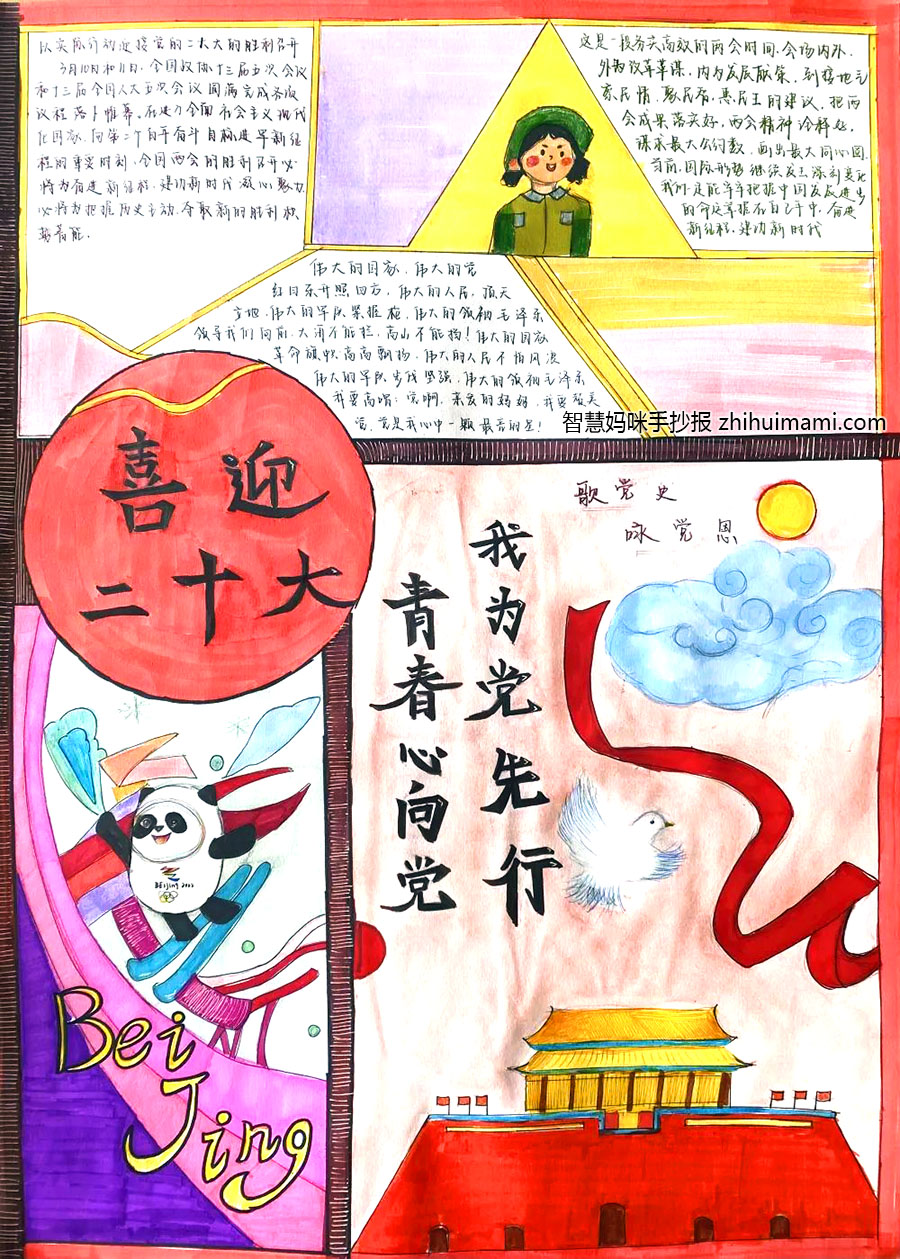 以实际行动迎接党的二十大的胜利召开
3月10日和11日，全国政协十三届五次会议
和十三届全国人大五次会议圆满完成各项
议程落下帷幕，在进入全面
化国家、向第二个百年奋斗目标进军新征
程的重要时刻，全国两会的胜利召开必
将为奋进新征程、建功新时代凝心聚力
必将为把握历史主动、夺取新的胜利积
势蓄能。
这是一段务实高效的两会时间，会场内外，
外为改革 内为发展献策，到接地气
聚民情、聚民智、惠民生的建议，把两
会成果落实好，两会精神诠释好，
谋求最大公约数，画出最大同心圆。
当前，国际形势继续发生深刻变化
我们定能牢牢把握中国发展进步
的命运掌握在自己手中，奋进
新征程，建功新时代
伟大的国家，伟大的党
红日东升照四方，伟大的人民，顶天
立地，伟大的军队紧握枪，伟大的领袖毛泽东
领导我们向前，大河不能拦，高山不能挡！伟大的国家
革命旗帜高高飘扬，伟大的人民不怕风浪
伟大的军队步伐坚强，伟大的领袖毛泽东
我要高唱：党啊，亲爱的妈妈，我要颂美
党，党是我心中一颗最亮的星！
智慧妈咪手抄报 zhihuimami.com
喜迎
二十大
歌党史
咏党恩
我为党先行
青春心向党
BEIJING 2022
Bei
Jing